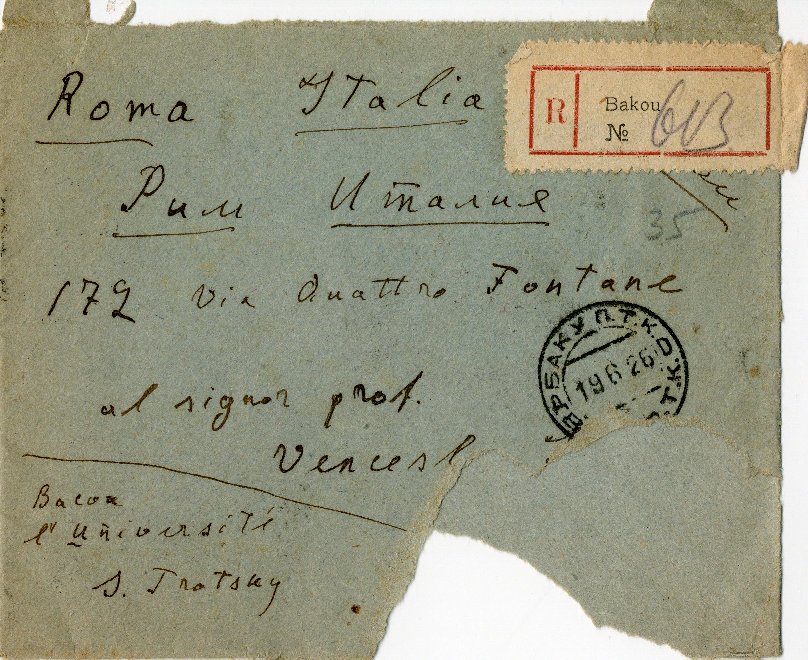 Roma Italia
R Bakou
№ 613
Рим Италия
35
172 via Quattro Fontane
БАКУ П.Т.К.О.
19 6 26
al signor prof.
Vencesl
Bacou
l'Université
S. Trotsky